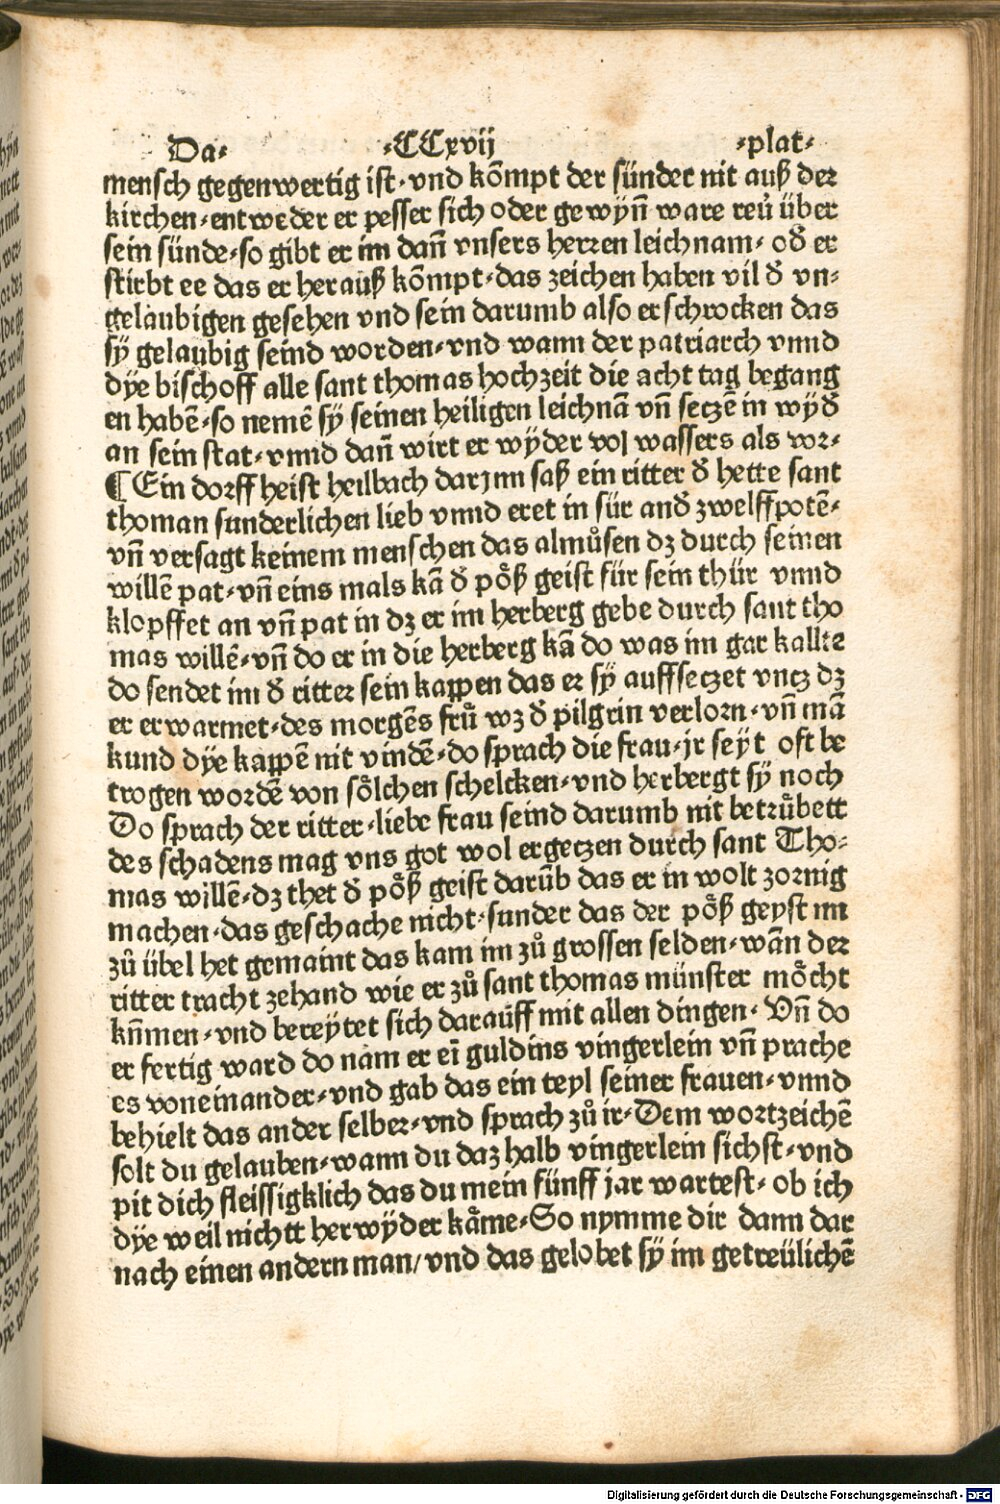 Da- -CCxvij -plat-
mensch gegenwertig ist· vnd kōmpt der sünder nit auß der
kirchen· entweder er pesser sich oder gewyñ ware reü über
sein sünde· so gibt er im dañ vnsers herren leichnam· od̄ er
stirbt ee das er herauß kōmpt· das zeichen haben vil d̄ vn-
gelaubigen gesehen vnd sein darumb also erschrocken das
sÿ gelaubig seind worden· vnd wann der patriarch vnnd
dÿe bischoff alle sant thomas hochzeit die acht tag begang
en habē· so nemē sÿ seinen heiligen leichnā vñ seczē in wÿd̄
an sein stat· vnnd dañ wirt er wÿder vol wassers als vor-
¶ Ein dorff heist heilbach darjnn saß ein ritter d̄ hette sant
thoman sunderlichen lieb vnnd eret in für and̄ zwelffpotē-
vñ versagt keinem menschen das almůsen dz durch seinen
willē pat· vñ eins mals kā d̄ pöß geist für sein thür vnnd
klopffet an vñ pat in dz er im herberg gebe durch sant tho
mas willē· vñ do er in die herberg kā do was im gar kallte
do sendet im d̄ ritter sein kappen das er sÿ auffseczet vncz dz
er erwarmet· des morgēs frů wz d̄ pilgrin verlorn· vñ mā
kund dÿe kappē nit vindē· do sprach die frau· jr seyt oft be
trogen wordē von sölchen schelcken· vnd herbergt sÿ noch
Do sprach der ritter· liebe frau seind darumb nit betrübett
des schadens mag vns got wol ergeczen durch sant Tho-
mas willē· dz thet d̄ pöß geist darūb das er in wolt zornig
machen· das geschache nicht· sunder das der pöß geyst im
zů übel het gemaint das kam im zů grossen selden· wān der
ritter tracht zehand wie er zů sant thomas münster möcht
kūmen· vnd bereÿtet sich darauff mit allen dingen· Vñ do
er fertig ward do nam er eī guldins vingerlein vñ prache
es voneinander· vnd gab das ein teyl seiner frauen· vnnd
behielt das ander selber· vnd sprach zů ir· Dem wortzeichē
solt du gelauben· wann du daz halb vingerlein sichst· vnd
pit dich fleissigklich das du mein fünff jar wartest· ob ich
dÿe weil nichtt herwÿder käme· So nymme dir dann dar
nach einen andern man/ vnd das gelobet sÿ im getreülichē
Digitalisierung gefördert durch die Deutsche Forschungsgemeinschaft - DFG